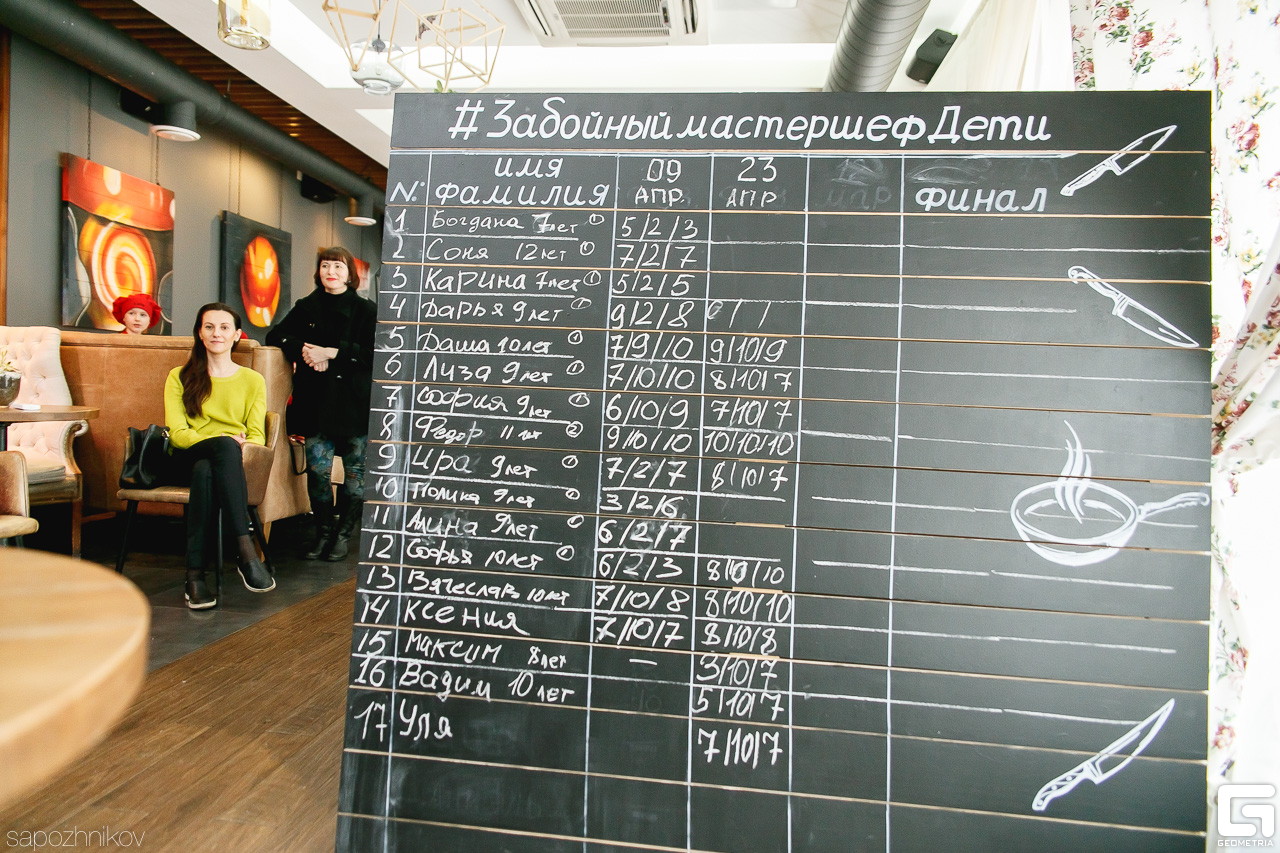 #ЗабойныймастершефДети
№: имя фамилия 09 АПР. 23 АПР апр финал
1 Богдана 7лет 1 5/2/3
2 Соня 12лет 1 7/2/7
3 Карина 7лет 1 5/2/5
4 Дарья 9лет 1 9/2/8 / /
5 Даша 10лет 1 7/9/10 9/10/9
6 Лиза 9лет 1 7/10/10 8/10/7
7 София 9лет 1 6/10/9 7/10/7
8 Федор 11лет 2 9/10/10 10/10/10
9 Ира 9лет 1 7/2/7 8/10/7
10 Полина 9лет 1 3/2/6
11 Алина 9лет 1 6/2/7
12 Софья 10лет 1 6/2/3 8/10/10
13 Вячеслав 10лет 7/10/8 8/10/10
14 Ксения 7/10/7 8/10/8
15 Максим 8лет — 3/10/7
16 Вадим 10лет 5/10/7
17 Уля 7/10/7
sapozhnikov
GEOMETRIA